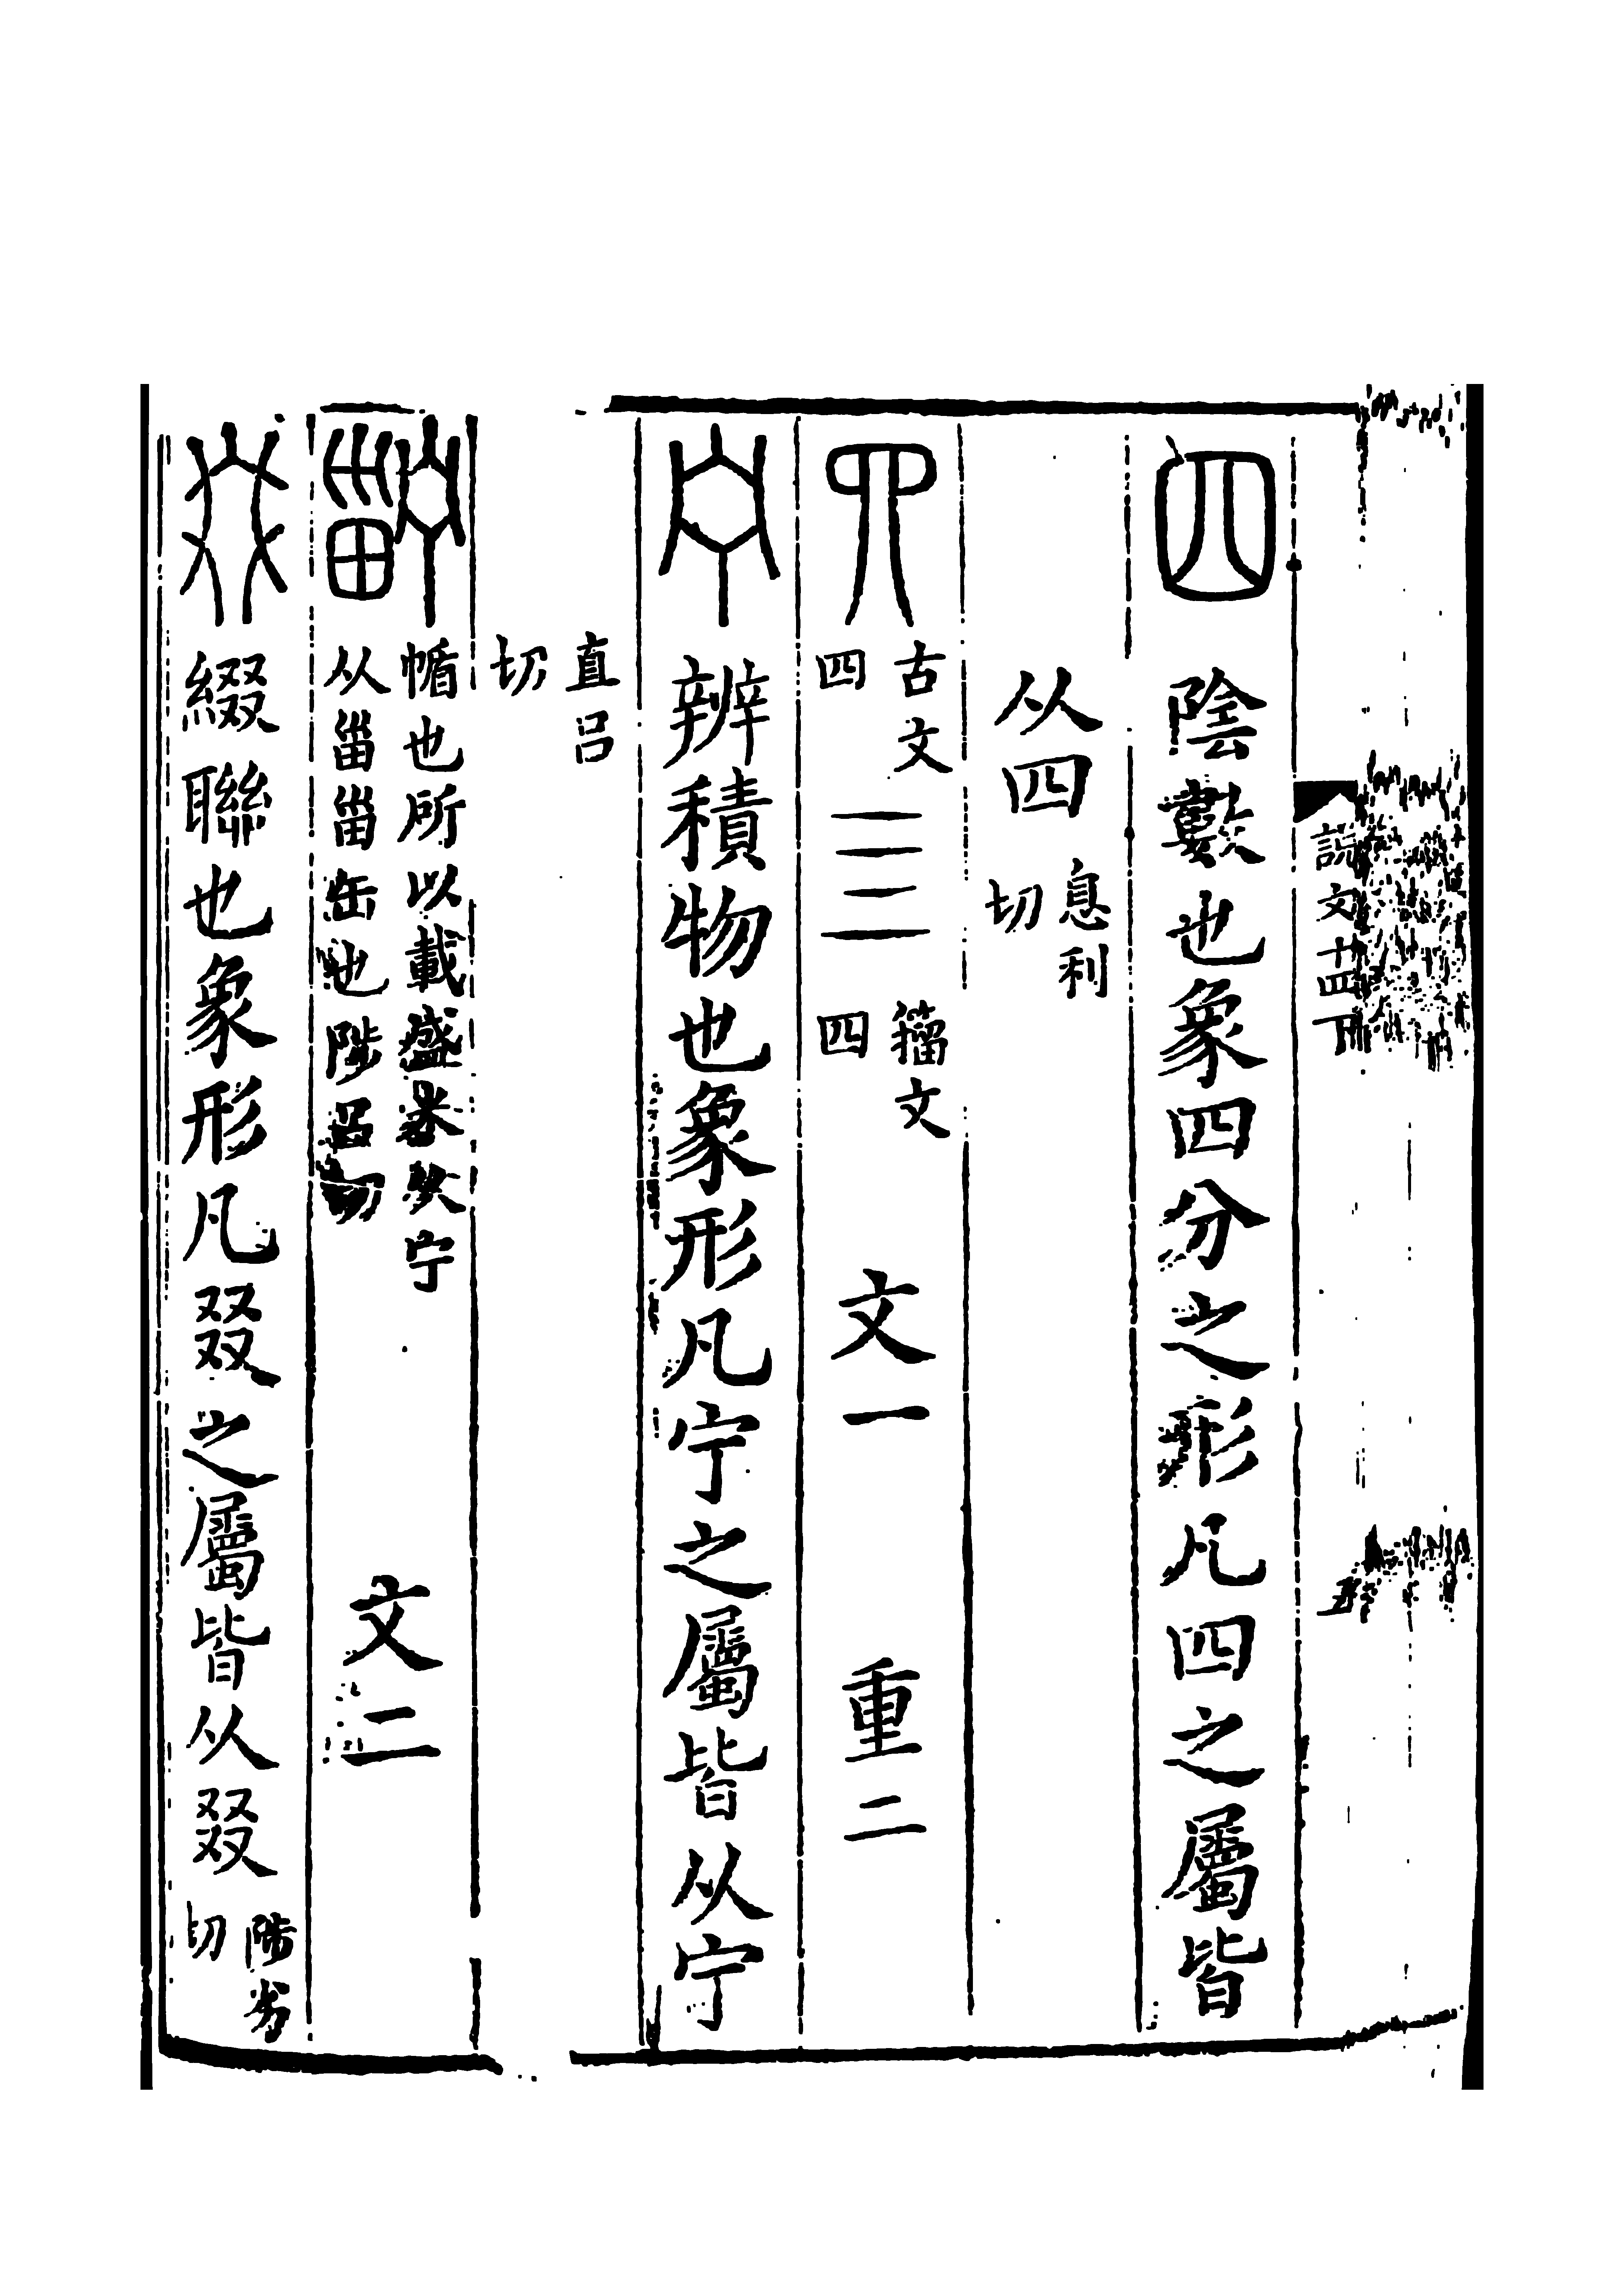 說文十四下 五
四 陰數也象四分之形凡四之屬皆
从四 息利切
𦉭 古文四 亖 籒文四 文一 重二
宁 辨積物也象形凡宁之屬皆从宁
直呂切
㡒也所以載盛米从宁从甾甾缶也陟呂切 文二
叕 綴聯也象形凡叕之屬皆从叕 陟劣切